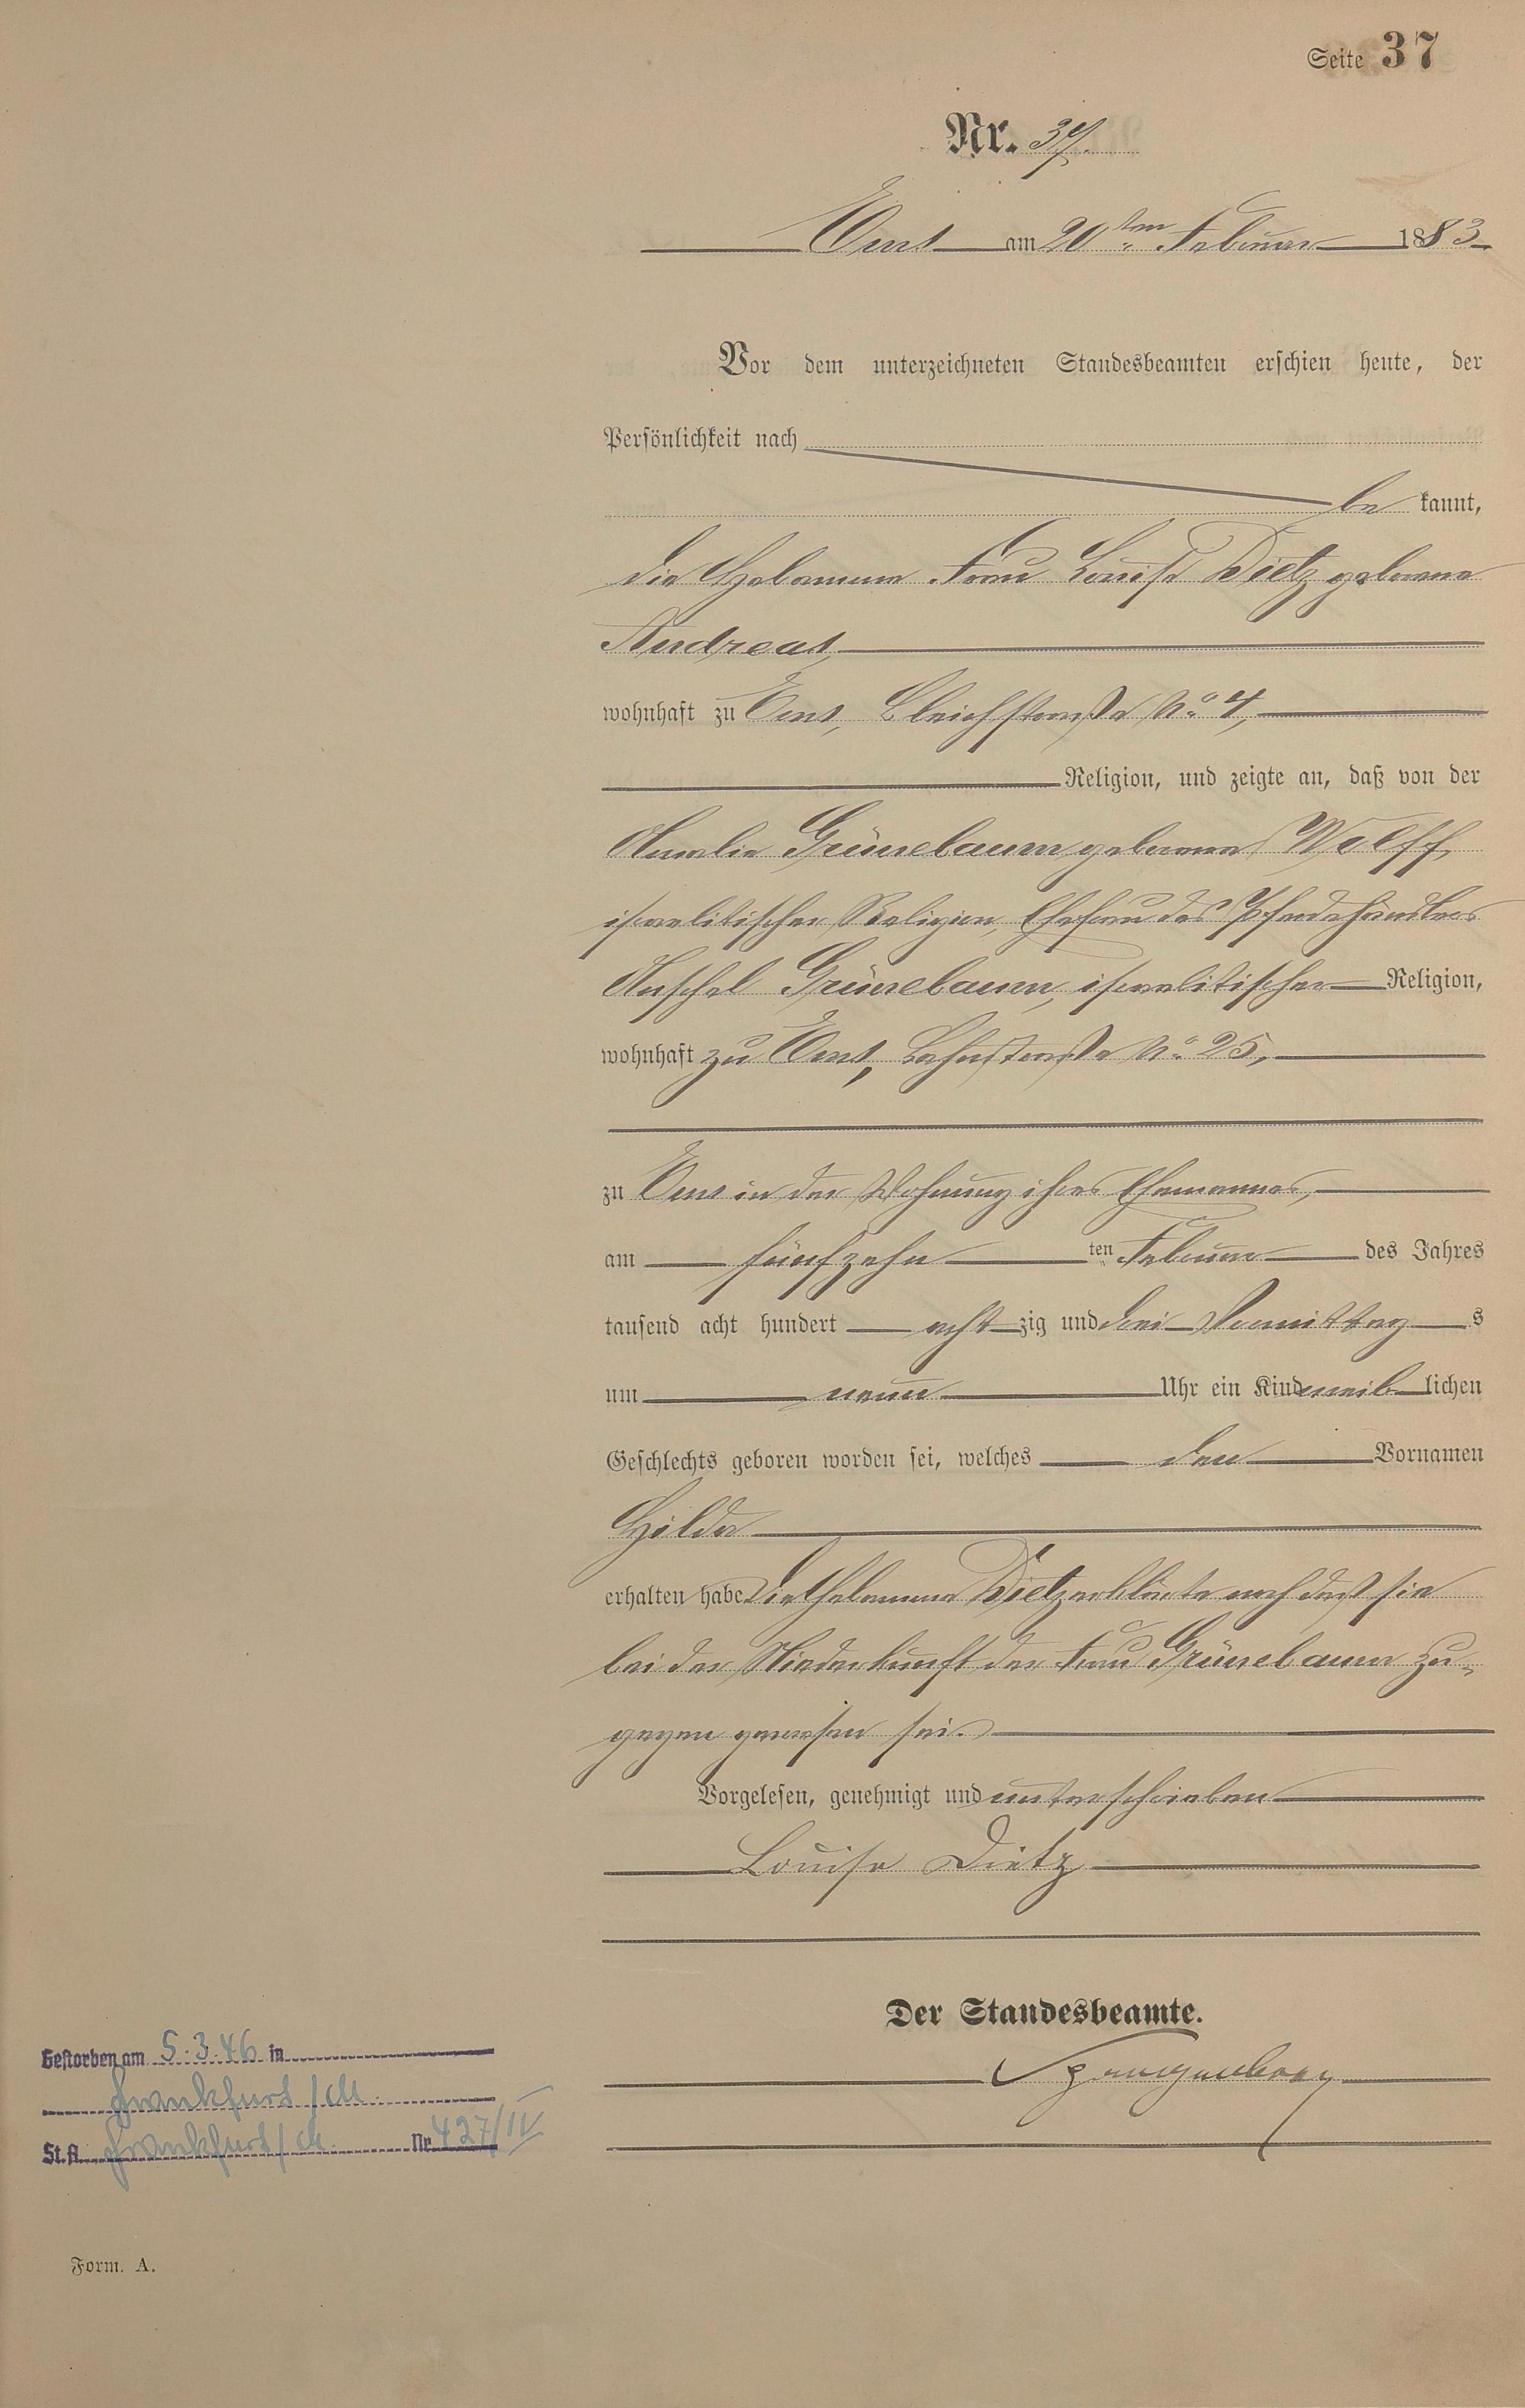 Seite 37
Nr. 37.
Ems am 20ten Februar 1883
Vor dem unterzeichneten Standesbeamten erschien heute, der
Persönlichkeit nach
be kannt,
die Hebamme Frau Louise Dietz geborene
Andreas,
wohnhaft zu Ems, Bleichstraße No. 4,
Religion, und zeigte an, daß von der
Amalie Grünebaum geborene Wolff,
israelitischer Religion, Ehefrau des Pferdehändlers
Anschel Grünebaum, israelitischer Religion,
wohnhaft zu Ems, Lahnstraße No. 25,
zu Ems in der Wohnung ihres Ehemannes,
am fünfzehn ten Februar des Jahres
tausend acht hundert acht zig und drei Vormittag s
um neun Uhr ein Kind weib lichen
Geschlechts geboren worden sei, welches den Vornamen
Hilda
erhalten habe. Die Hebamme Dietz erklärte noch daß sie
bei der Niederkunft der Frau Grünebaum zu-
gegen gewesen sei.
Vorgelesen, genehmigt und unterschrieben
Louise Dietz
Der Standesbeamte.
Spangenberg
Gestorben am 5.3.46 in
Frankfurt/M.
St.A. Frankfurt/M. Nr. 427/IV
Form. A.